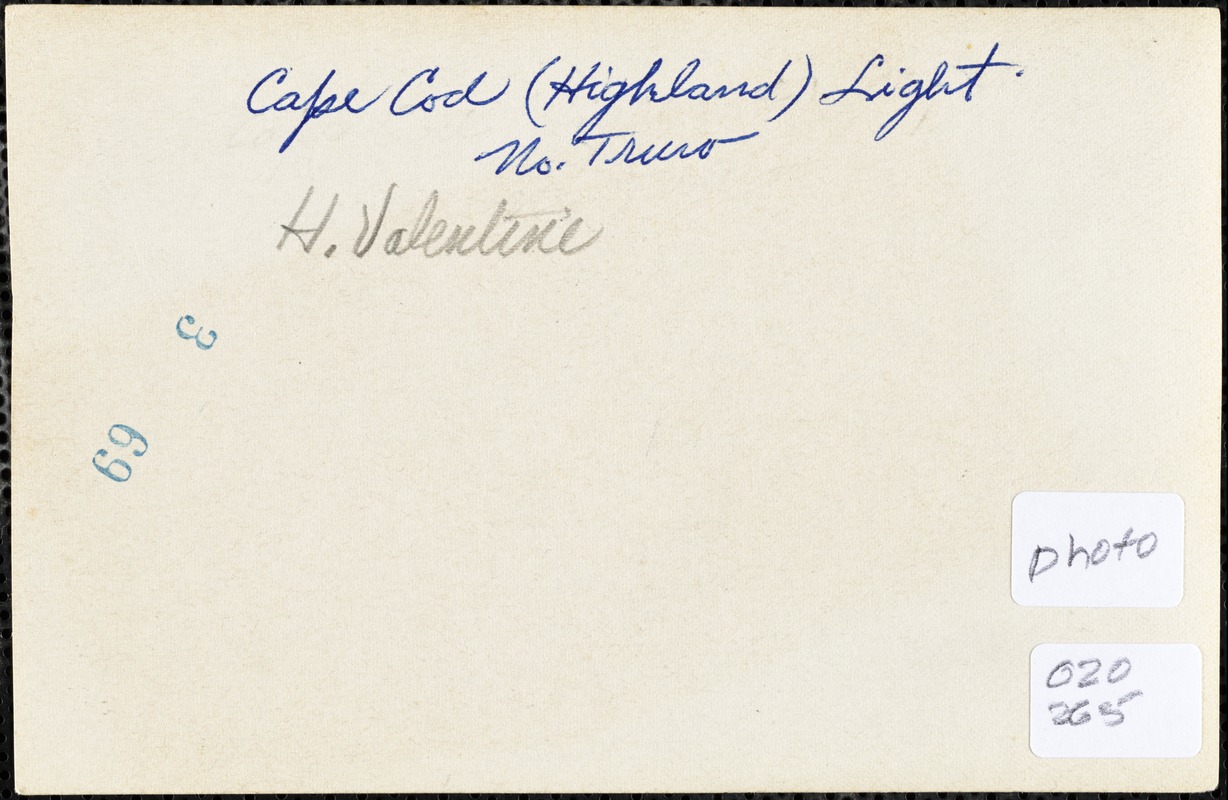 Cape Cod (Highland) Light.
No. Truro
H. Valentine
3
69
photo
020
265